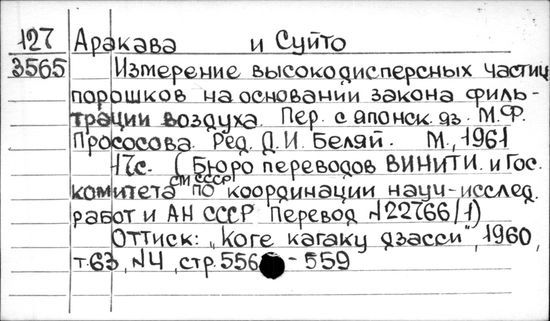 127 Аракава и Суйто
3565 Измерение высокодисперсных частиц
порошков на основании закона филь-
трации воздуха. Пер. с японск. яз. М.Ф.
Прососова. Ред. Д.И. Беляй. М., 1961
17с. (Бюро переводов ВИНИТИ. и Гос.
СМ СССР
комитета по координации науч-исслед.
работ и АН СССР Перевод №22766/1)
Оттиск: „Коге кагаку дзасси", 1960,
т.63, №4, стр. 556 - 559